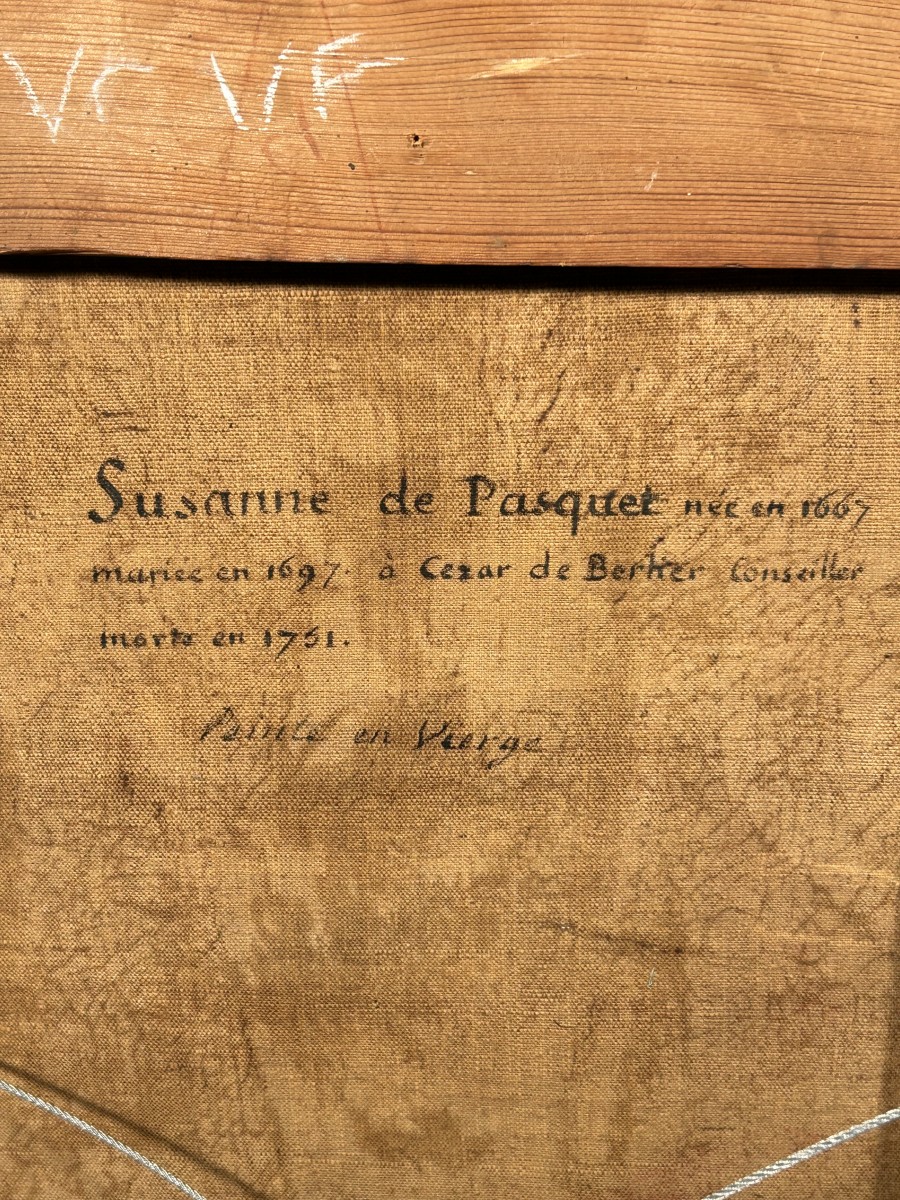 Vr VF
Susanne de Pasquet née en 1667
mariée en 1697. à Cezar de Bertier Conseiller
morte en 1751.
Peinte en Vierge